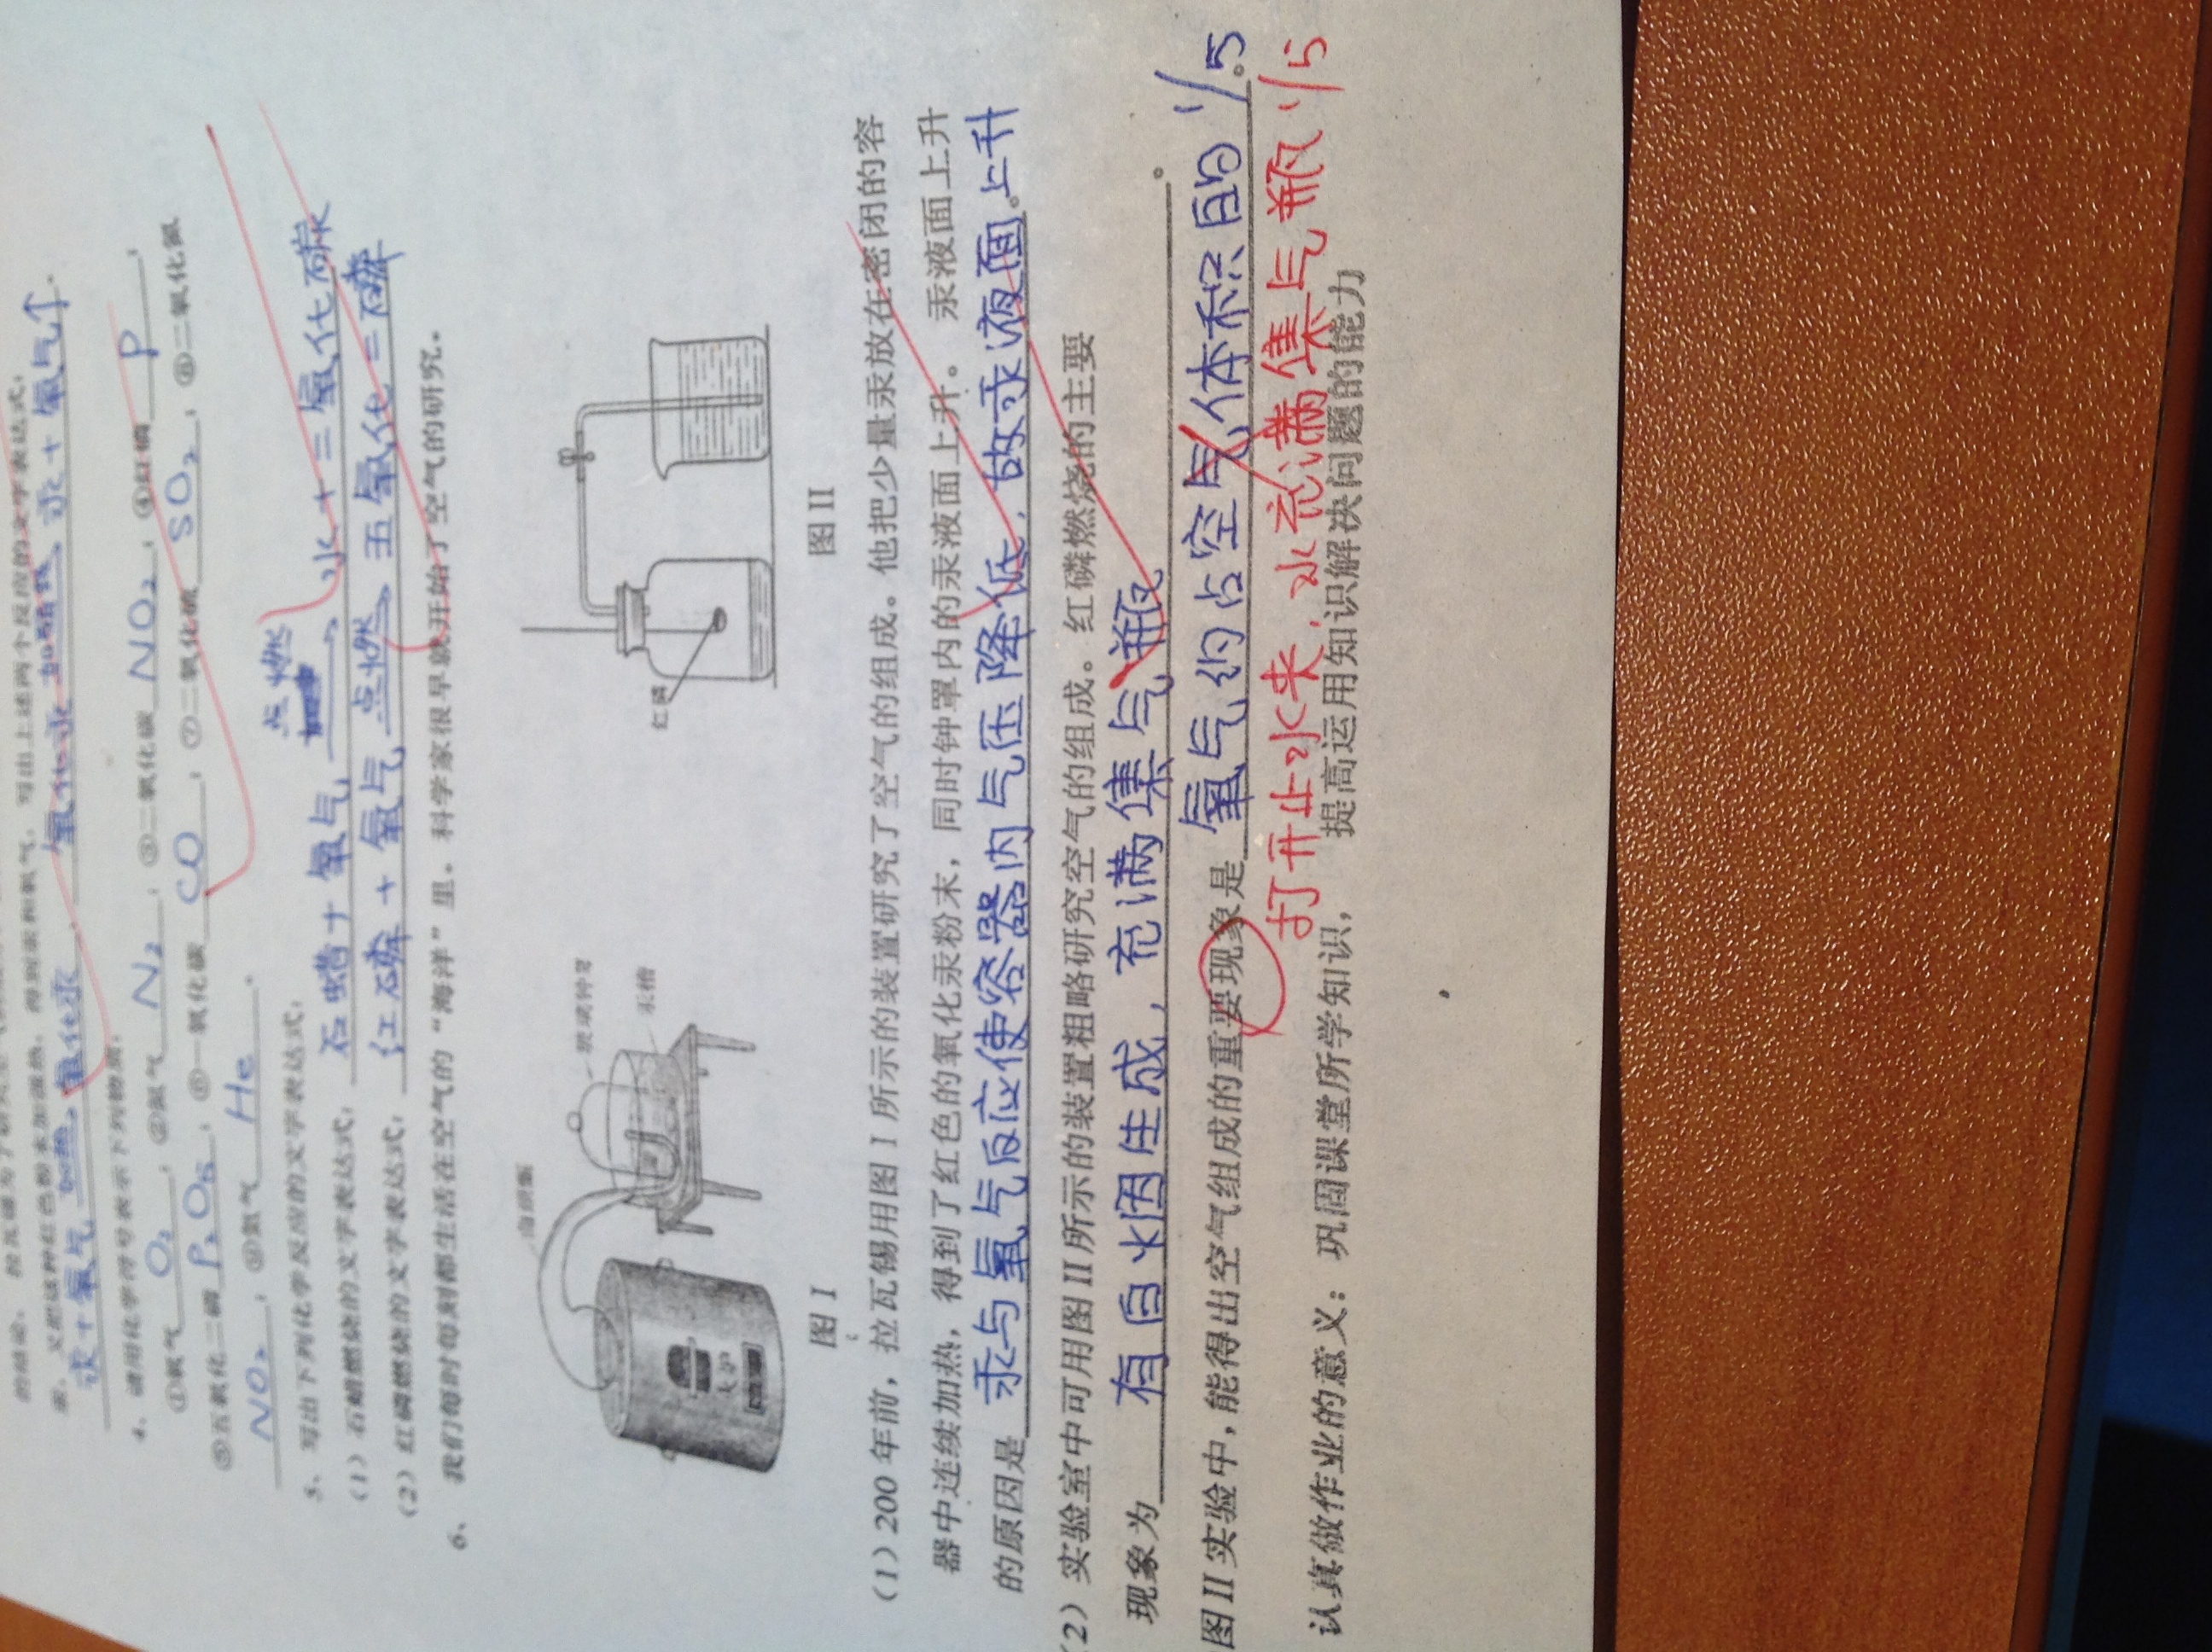 的结论。拉瓦锡为了研究空气的成分
汞,又把这种红色粉末加强热,得到汞和氧气,写出上述两个反应的文字表达式:
汞+氧气 加热→ 氧化汞,氧化汞 加强热→ 汞+氧气↑.
4、请用化学符号表示下列物质:
①氧气 O₂ ,②氮气 N₂ ,③二氧化碳 NO₂ ,④红磷 P ,
⑤五氧化二磷 P₂O₅ ,⑥一氧化碳 CO ,⑦二氧化硫 SO₂ ,⑧二氧化氮
NO₂ ,⑨氦气 He 。
5、写出下列化学反应的文字表达式:
(1)石蜡燃烧的文字表达式:石蜡+氧气 点燃→ 水+二氧化碳
(2)红磷燃烧的文字表达式:红磷+氧气 点燃→ 五氧化二磷
6、我们每时每刻都生活在空气的“海洋”里。科学家很早就开始了空气的研究。
曲颈甑
玻璃钟罩
汞槽
火炉
红磷
图 I
图 II
(1)200年前,拉瓦锡用图 I 所示的装置研究了空气的组成。他把少量汞放在密闭的容
器中连续加热,得到了红色的氧化汞粉末,同时钟罩内的汞液面上升。 汞液面上升
的原因是 汞与氧气反应使容器内气压降低,故汞液面上升。
(2)实验室中可用图 II 所示的装置粗略研究空气的组成。红磷燃烧的主要
现象为 有白烟生成,充满集气瓶 。
图 II 实验中,能得出空气组成的重要现象是 氧气约占空气体积的1/5。
打开止水夹,水充满集气瓶1/5
认真做作业的意义:巩固课堂所学知识, 提高运用知识解决问题的能力